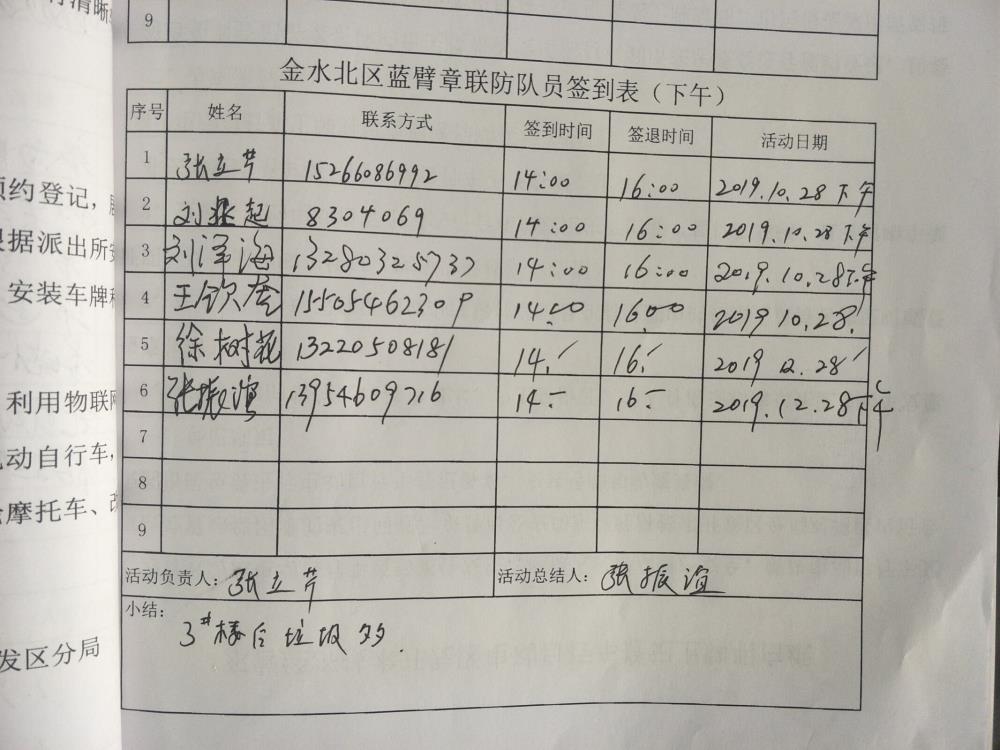 9
金水北区蓝臂章联防队员签到表（下午）
序号 姓名 联系方式 签到时间 签退时间 活动日期
1 张立芹 15266086992 14:00 16:00 2019.10.28下午
2 刘兆起 8304069 14:00 16:00 2019.10.28下午
3 刘泽海 13280325737 14:00 16:00 2019.10.28下午
4 王钦 15505462309 14:00 16:00 2019 10.28.
5 徐树花 13220508181 14. 16. 2019 12.28
6 张振谊 13954609716 14 16 2019.12.28下午
7
8
9
活动负责人：张立芹 活动总结人：张振谊
小结：
3#楼后垃圾多.
预约登记，
根据派出所
安装车牌
利用物联网
动自行车，
摩托车、
发区分局